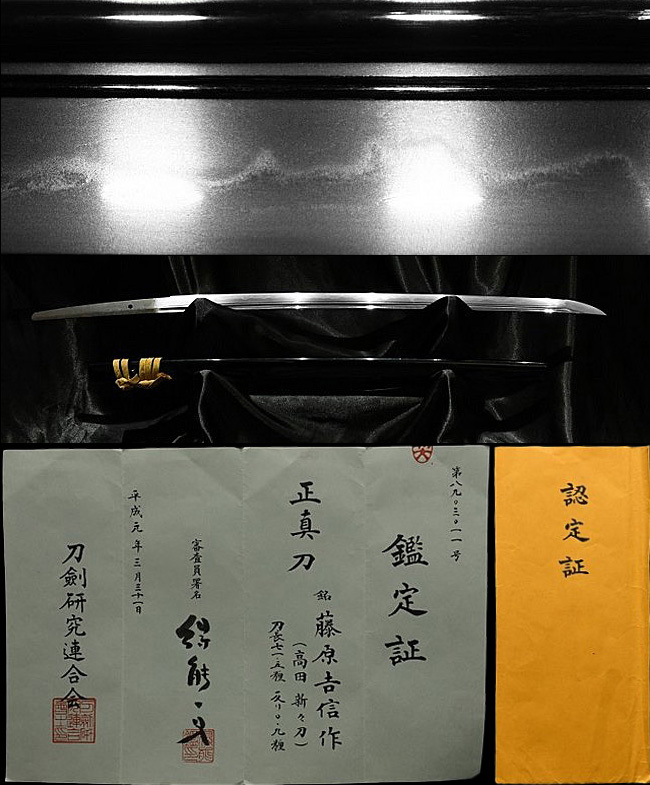 認定証
第八九〇三〇一一号
鑑定証
正真刀
銘 藤原吉信作
(高田 新々刀)
刀長七一・五糎 反り〇・九糎
審査員署名
得能一男
平成元年三月三十一日
刀劍研究連合会